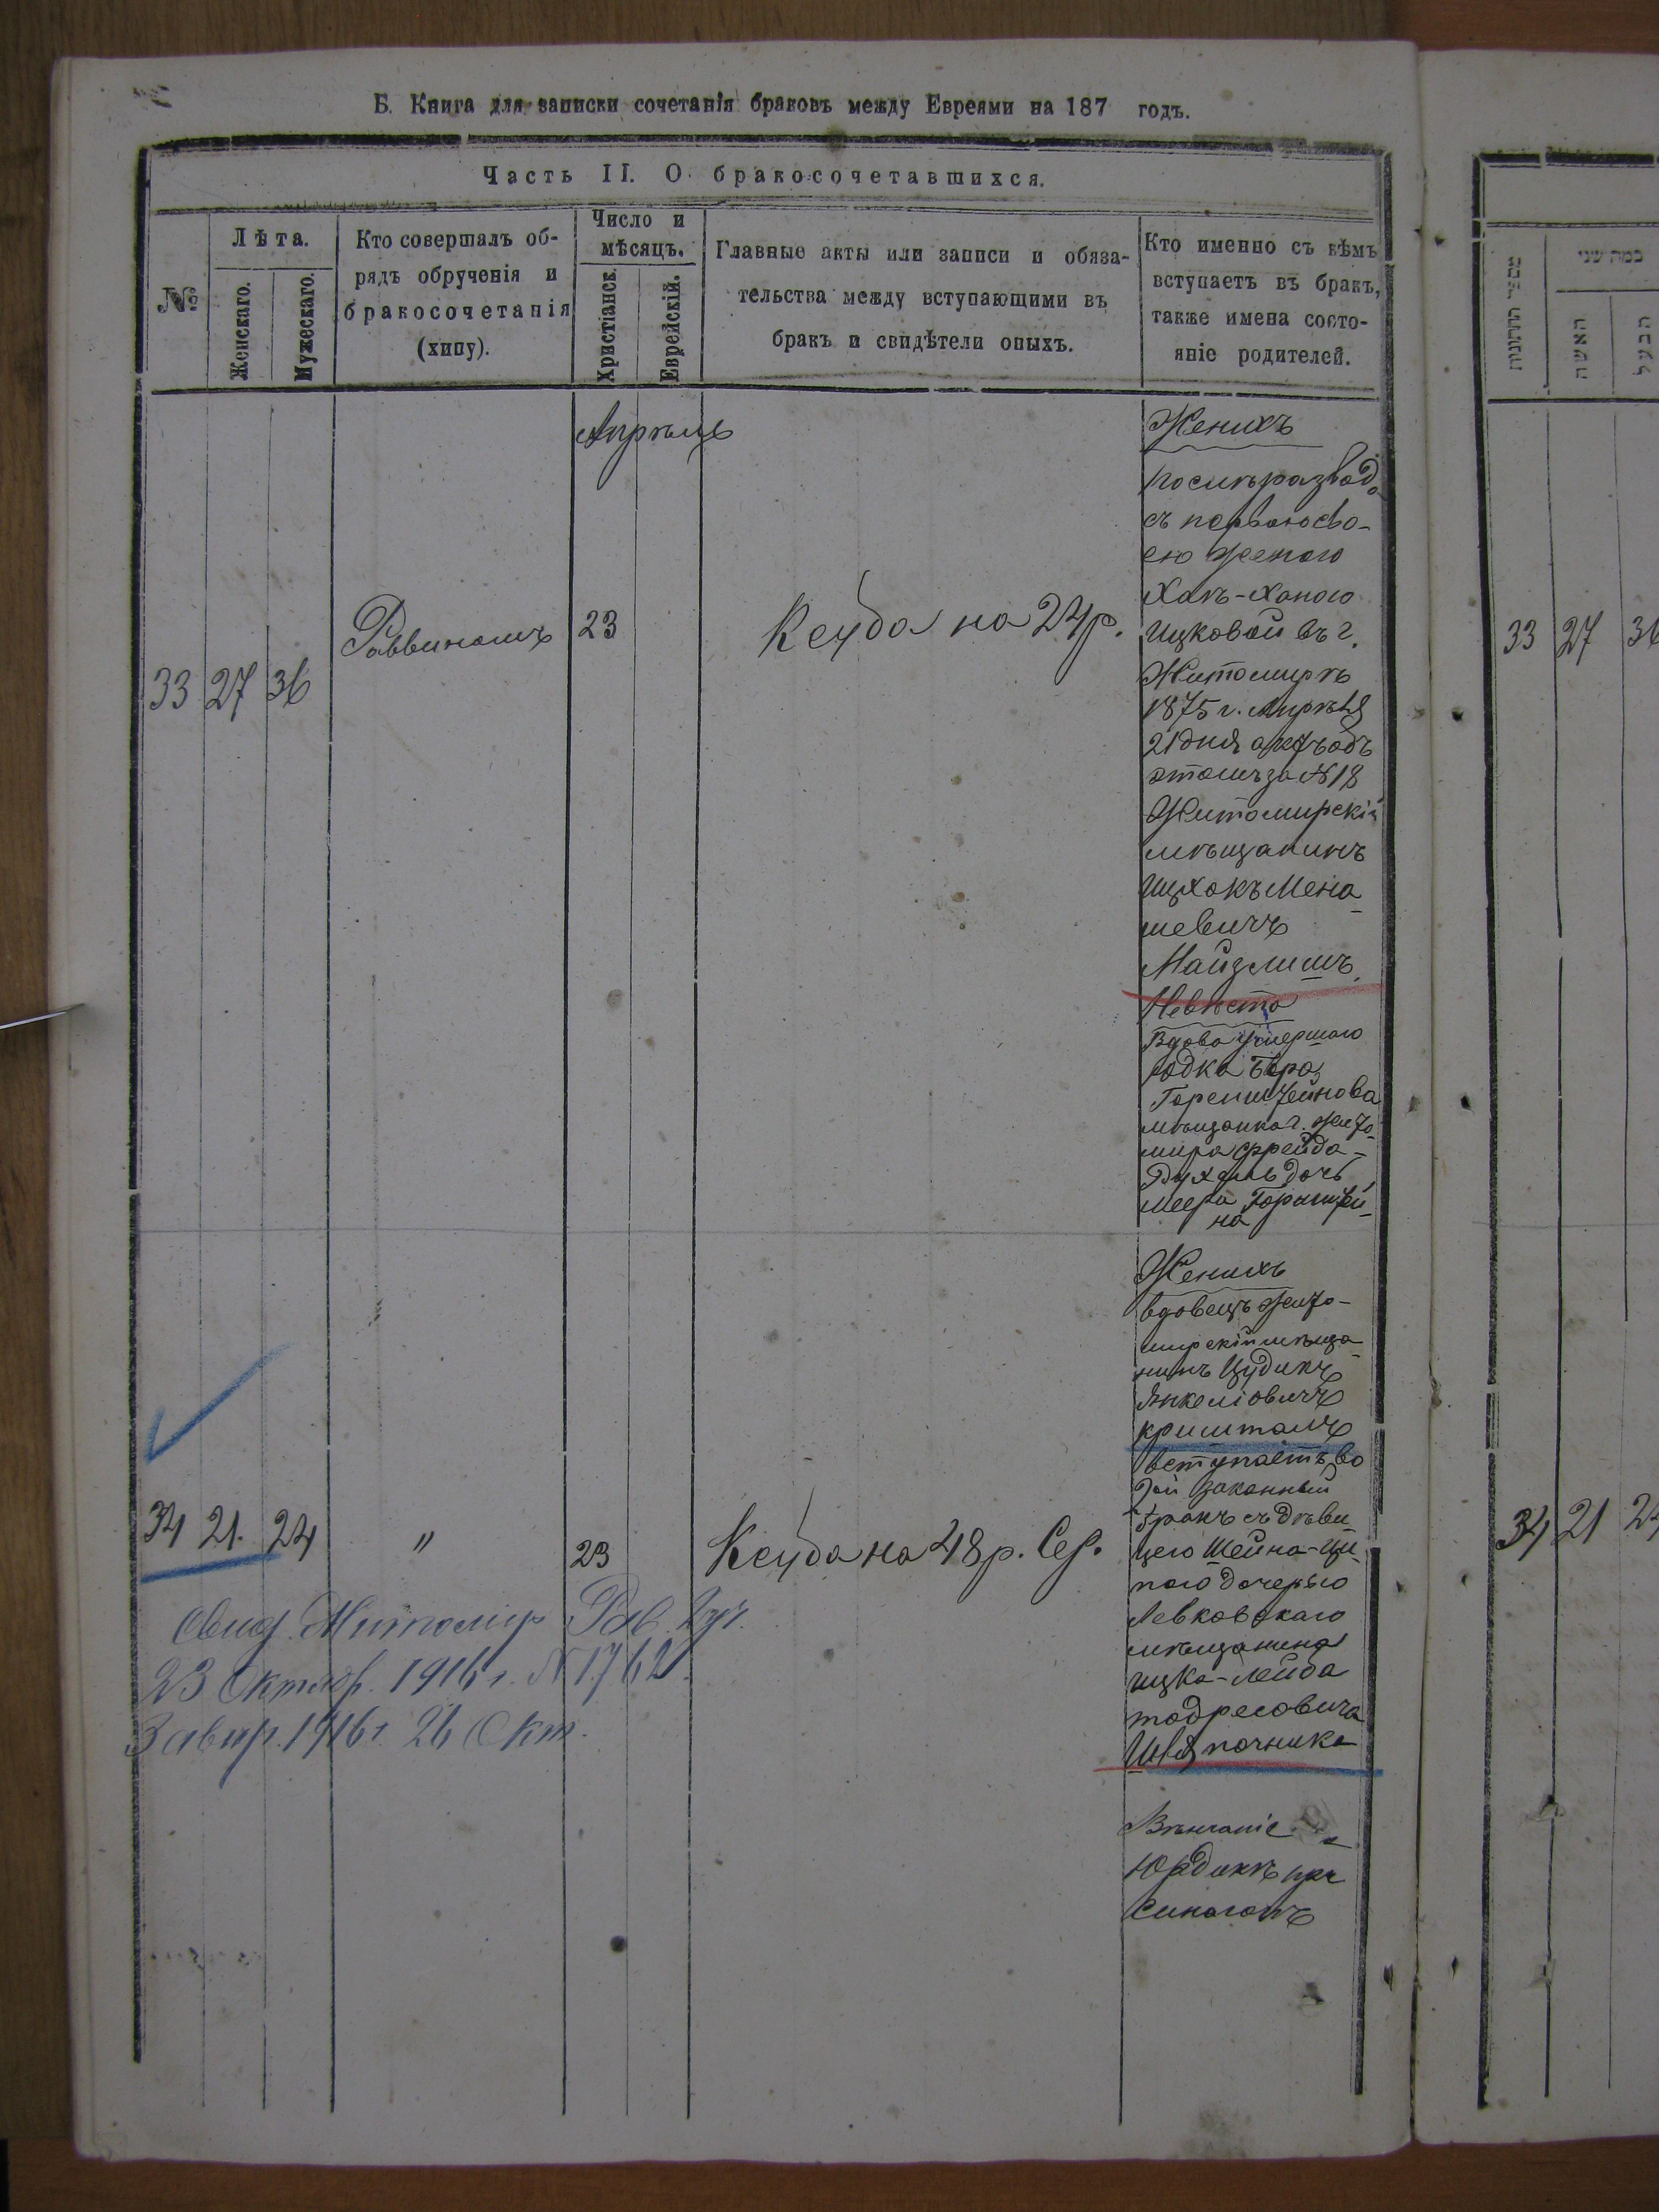 Б. Книга для записки сочетанія браковъ между Евреями на 187 годъ.
Часть II. О бракосочетавшихся.
№
Лѣта.
Женскаго.
Мужескаго.
Кто совершалъ об-
рядъ обрученія и
бракосочетанія
(хипу).
Число и
мѣсяцъ.
Христіанск.
Еврейскій.
Главные акты или записи и обяза-
тельства между вступающими въ
бракъ и свидѣтели оныхъ.
Кто именно съ кѣмъ
вступаетъ въ бракъ,
также имена состо-
яніе родителей.
Апрѣль
33 27 36
Раввиномъ
23
Кецба на 24 р.
Женихъ
послѣ развод.
съ первою сво-
ею женою
Хаѣ-Ханою
Ицковой въ г.
Житомирѣ
1875 г. Апрѣля
21 дня актъ объ
этомъ за №18
Житомирскій
мѣщанинъ
Ицхокъ Мена-
шевичъ
Майзлишъ
Невѣста
Вдова умершаго
Бера
мѣщанка г. Жито-
мира Фрейда-
Рухель дочь
Меера Горнштей-
на
34 21. 24
"
23
Кецба на 48 р. Сер.
Женихъ
вдовецъ жито-
мирскій мѣща-
нинъ Цудикъ
Янкеліовичъ
Кришталъ
вступаетъ во
2ой законный
бракъ съ дѣви-
цею Шейна-Ци-
пою дочерью
Левковскаго
мѣщанина
Ицка-Лейба
тодресовича
Шляпочника
Вѣнчаніе
при
Синагогѣ
Свид. Житомир. Рав.
23 Октяб. 1916 г. N 1762.
1916 г. 26 Окт.
מספר החתונות
כמה שני
האשה
הבעל
33 27 36
34 21 24